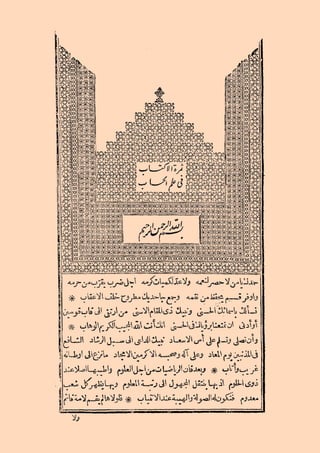 ثمرة الاكتساب
في علم الحساب
بسم الله الرحمن الرحيم
حمدا لمن لا حصر لنعمه ولا عد لكميات كرمه اجل ضرب يقرب من حرمه
واوفر قسم يحفظ من نقمه وجمع جامد يك مطروح خلف الاعقاب
نسألك باسمائك الحسنى ونبيك ذي المقام الاسنى من ارتقى الى قاب قوسين
أو أدنى ان تمتعنا برؤياك في الحسنى انك أنت الله المجيب الكريم الوهاب
وأن تصلي وتسلم على أس الاسعاد نبيك الداعي الى سبيل الرشاد الشافع
في المذنبين يوم المعاد وعلى آله وصحبه الاكرمين الامجاد ما نزع الى اوطانه
غريب وأناب وبعد فان الرياضيات من اجل العلوم واطيبها اصلا عند
ذوي الحلوم اذ بها ينتقل المجهول الى رتبة المعلوم وبها يظهر كل شعب
معدوم فتكون له الصولة والهيبة عند الانتساب تقول هاهم يقسم لامة قائم
ولا